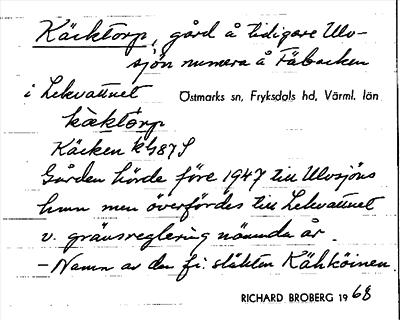 Käcktorp, gård å tidigare Ulv-
sjön numera å Fäbacken
i Lekvattnet Östmarks sn, Fryksdals hd, Värml. län
kæktå̀rp
Käcken kG87S
Gården hörde före 1947 till Ulvsjöns
hmn men överfördes till Lekvattnet
v. gränsreglering nämnda år.
– Namn av den fi. släkten Kähköinen.
RICHARD BROBERG 1968